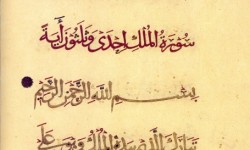 سورة الملك احدى وثلثون آية
بسم الله الرحمن الرحيم
تبارك الذي بيده الملك وهو على